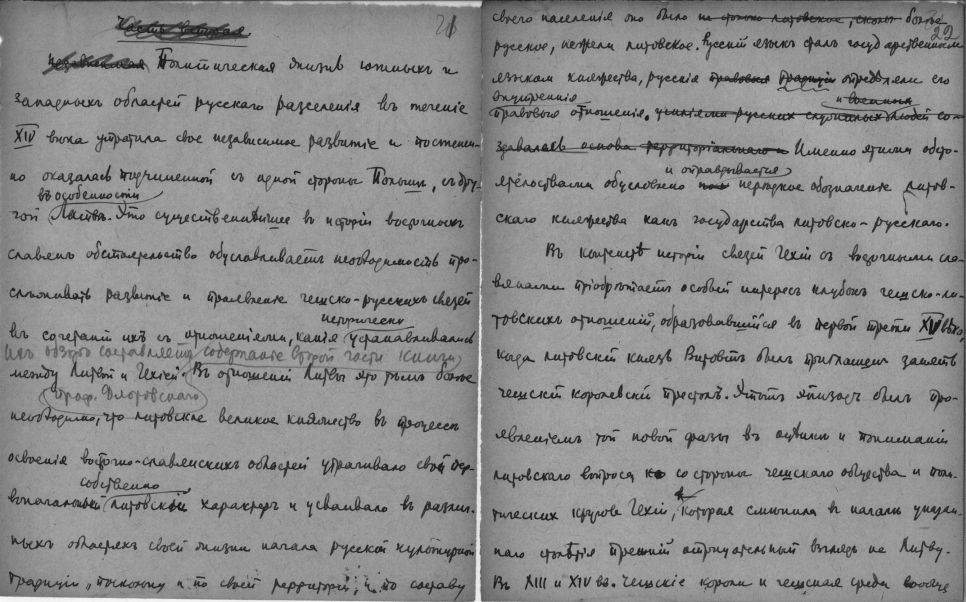 21
Часть вторая.
Политическая жизнь южныхъ и
западныхъ областей русскаго разселенія въ теченіе
XIV вѣка утратила свое независимое развитіе и постепен-
но оказалась подчиненной съ одной стороны Польши, съ дру-
въ особенности
гой Литвѣ. Это существеннѣйшее въ исторіи восточныхъ
славянъ обстоятельство обуславливаетъ необходимость про-
слѣживать развитіе и проявленіе чешско-русскихъ связей
исторически
въ сочетаніи ихъ съ отношеніями, какія устанавливались
ихъ обзоръ составляетъ содержаніе второй части книги
между Литвой и Чехіей. Въ отношеніи Литвы это тѣмъ болѣе
проф.
необходимо, что литовское великое княжество въ процессѣ
освоенія восточно-славянскихъ областей утрачивало свой пер-
собственно
воначальный литовскій характеръ и усваивало въ различ-
ныхъ областяхъ своей жизни начала русской культурной
традиціи, поскольку и по своей территоріи, и по составу
22
своего населенія оно было не столько литовское, сколь болѣе
русское, нежели литовское. Русскій языкъ сталъ государственнымъ
языкомъ княжества, русскія правовыя традиціи опредѣляли его
внутреннія и военныя
правовыя отношенія. усиліями русскихъ служилыхъ людей со-
здавалась основа территоріальнаго и Именно этими обсто-
и оправдывается
ятельствами обусловлено нерѣдкое обозначеніе Литов-
скаго княжества какъ государства литовско-русскаго.
Въ контекстѣ исторіи связей Чехіи съ восточными сла-
вянами пріобрѣтаетъ особый интересъ клубокъ чешско-ли-
товскихъ отношеній, образовавшійся въ первой трети XV вѣка,
когда литовскій князь Витовтъ былъ приглашенъ занять
чешскій королевскій престолъ. Этотъ эпизодъ былъ про-
явленіемъ той новой фазы въ оцѣнкѣ и пониманіи
литовскаго вопроса со стороны чешскаго общества и поли-
тическихъ круговъ Чехіи, которая смѣнила въ началѣ
столѣтія прежній отрицательный взглядъ на Литву.
Въ XIII и XIV вв. чешскіе короли и чешская среда вообще